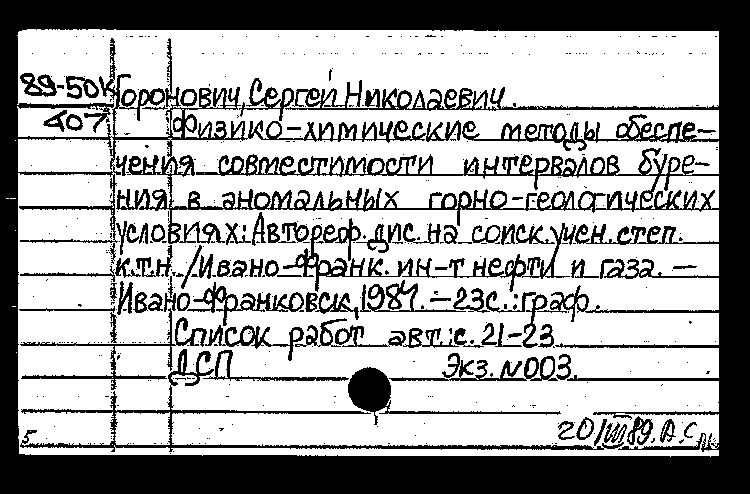 89-50к
407
Горонович, Сергей Николаевич.
Физико-химические методы обеспе-
чения совместимости интервалов буре-
ния в аномальных горно-геологических
условиях: Автореф. дис. на соиск. учен. степ.
к.т.н. / Ивано-Франк. ин-т нефти и газа. —
Ивано-Франковск, 1987. — 23с.: граф.
Список работ авт.: с. 21-23
ДСП Экз. N003.
5 20/III 89. А.С.